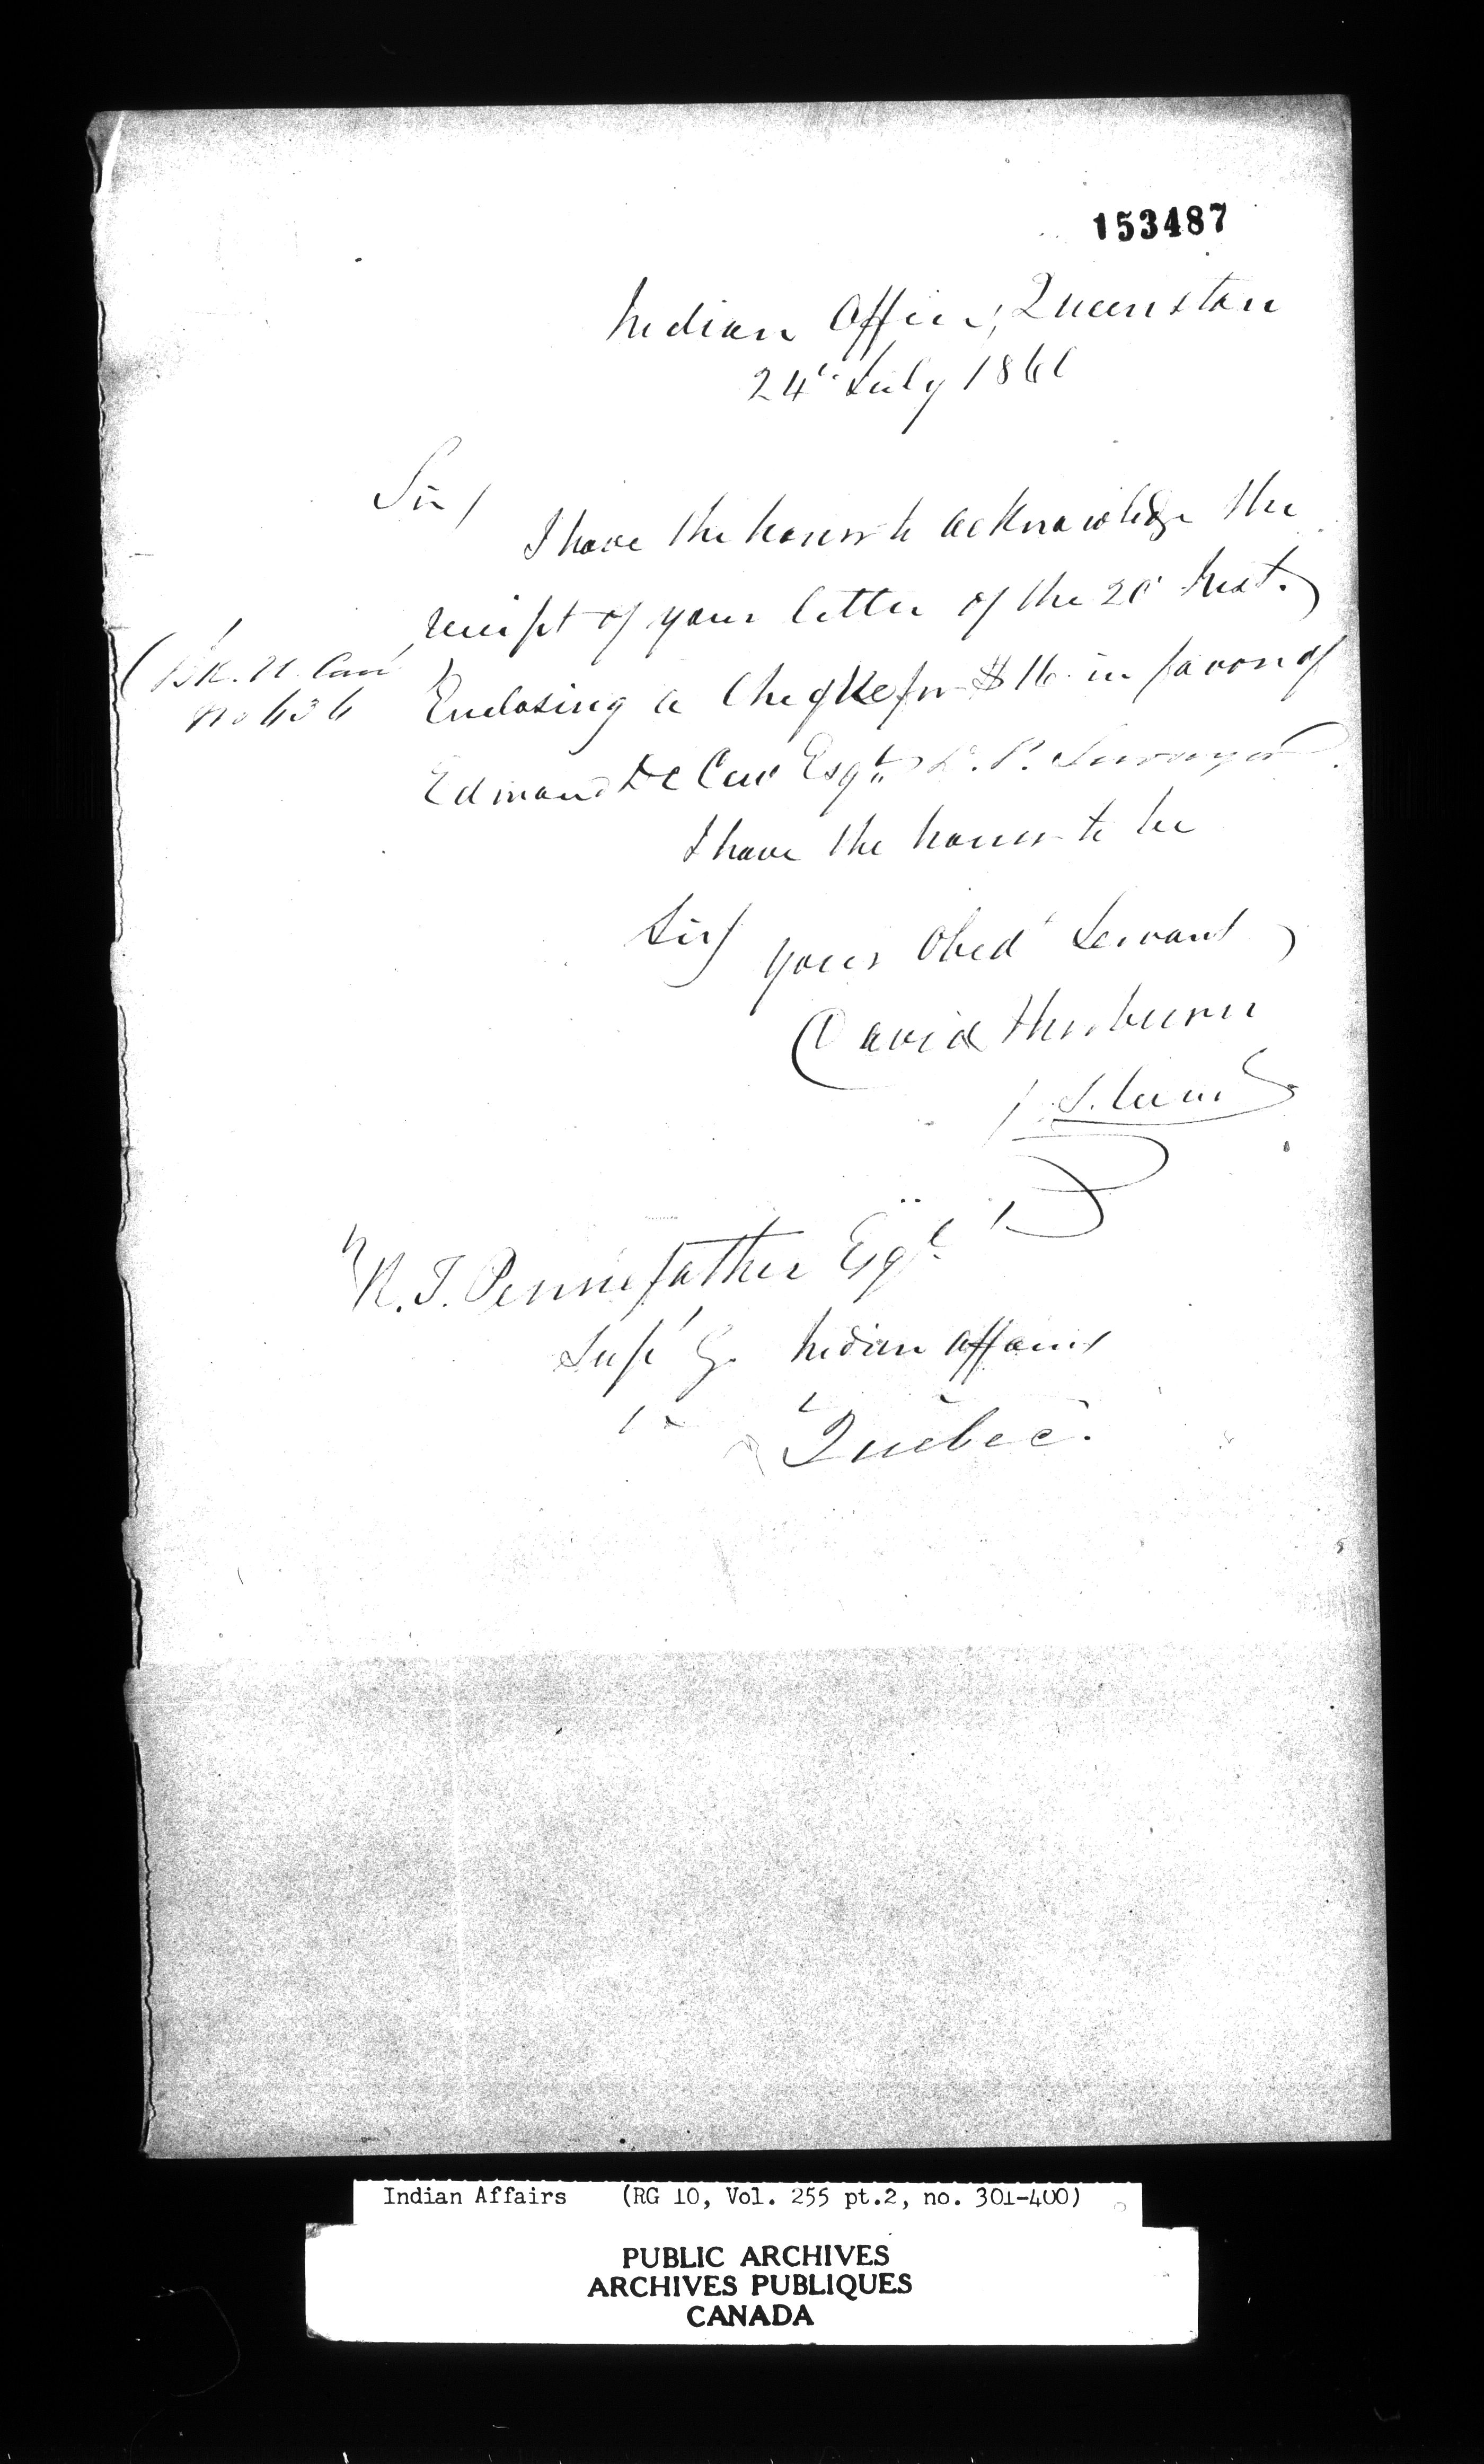 153487
Indian Office, Queenston
24th July 1860
Sir/
I have the honor to acknowledge the
receipt of your letter of the 20th Inst.
(Bk. U. Can
No 636)
Enclosing a Cheqke for $16 in favor of
Edmund De Cew Esqr. D. P. Surveyor.
I have the honor to be
Sir/
your Obedt Servant
David Thorburn
R. T. Pennefather Esqr
Supt G. Indian Affairs
Quebec.
Indian Affairs (RG 10, Vol. 255 pt.2, no. 301-400)
PUBLIC ARCHIVES
ARCHIVES PUBLIQUES
CANADA